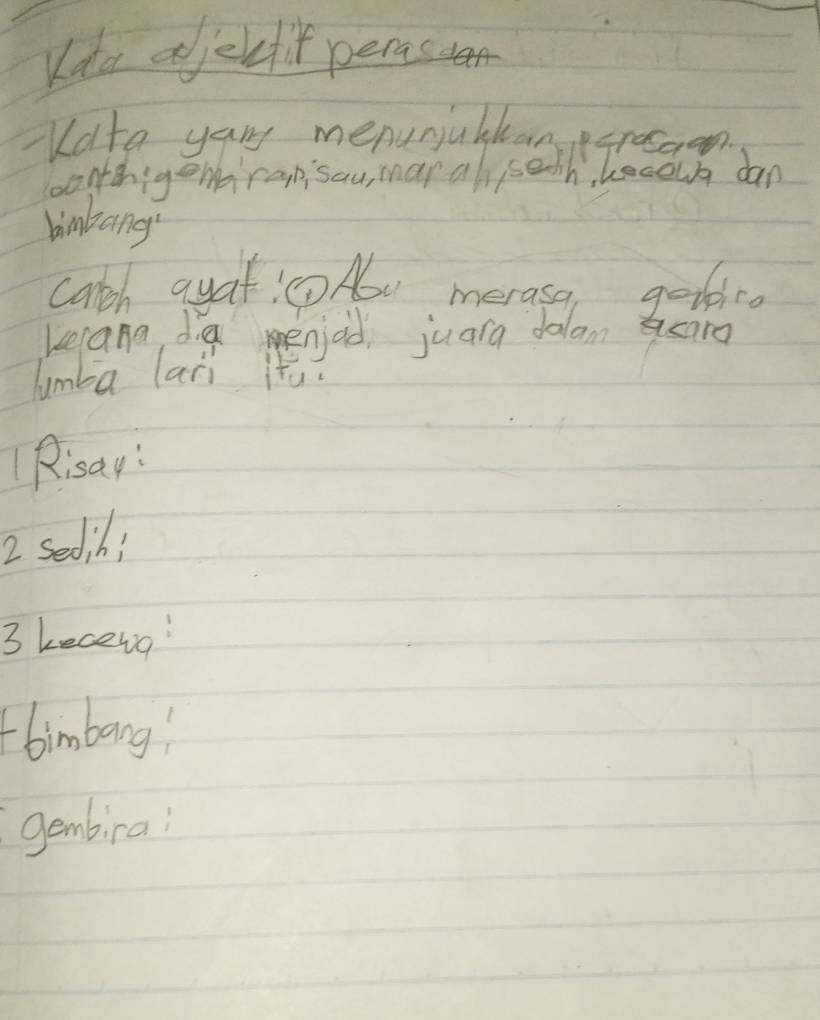 Kata adjektif perasaan
-Kata yang menunjukkan perasaan.
contoh: gembira, risau, marah, sedih, kecewa dan
bimbang.
contoh ayat: ① Abu merasa gembira
kerana dia menjadi juara dalam acara
lumba lari itu.
1 Risau:
2 sedih:
3 kecewa:
4 bimbang:
gembira: